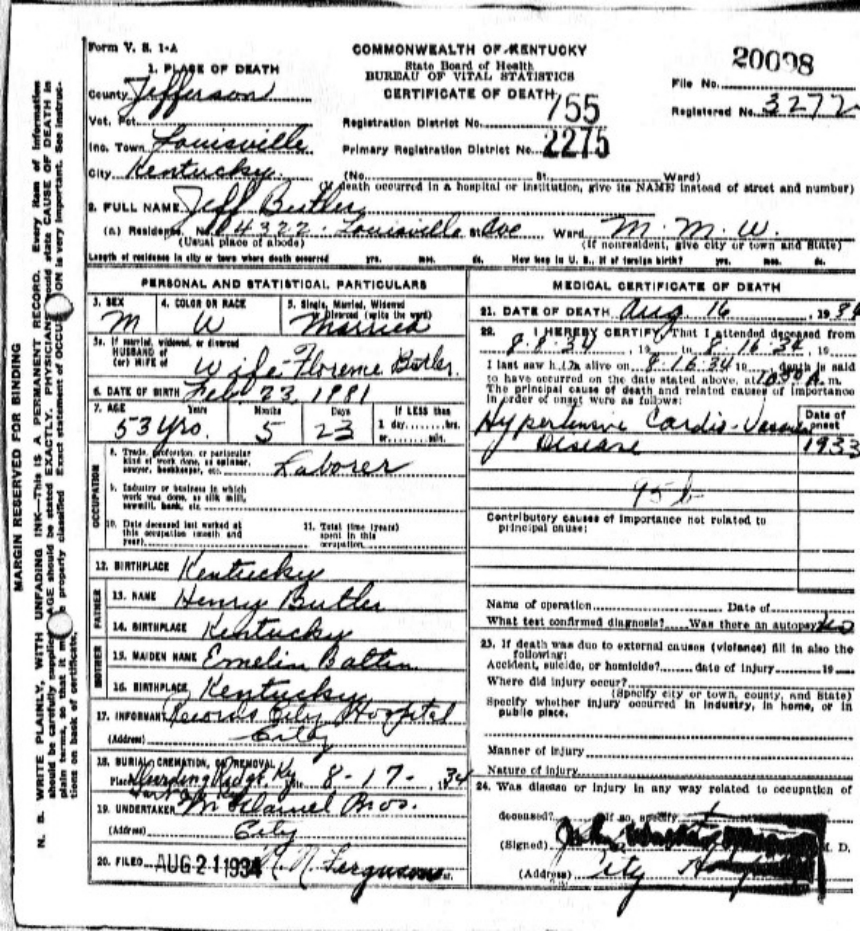 Form V. S. 1-A
COMMONWEALTH OF KENTUCKY
State Board of Health
BUREAU OF VITAL STATISTICS
CERTIFICATE OF DEATH
20098
File No.
Registered No. 3272
1. PLACE OF DEATH
County Jefferson
Vot. Pct.
Inc. Town Louisville
City Kentucky.
Registration District No. 755
Primary Registration District No. 2275
(No. St. Ward)
(If death occurred in a hospital or institution, give its NAME instead of street and number)
2. FULL NAME Jeff Butler
(a) Residence. No. 4322 - Louisville St. Ave Ward M. M. W.
(Usual place of abode) (If nonresident, give city or town and State)
Length of residence in city or town where death occurred yrs. mos. ds. How long in U. S., if of foreign birth? yrs. mos. ds.
PERSONAL AND STATISTICAL PARTICULARS
3. SEX
M
4. COLOR OR RACE
W
5. Single, Married, Widowed
Divorced (write the word)
Married
5a. If married, widowed, or divorced
HUSBAND of
(or) WIFE of
Wife-Florence Butler.
6. DATE OF BIRTH Feb 23, 1981
7. AGE Years Months Days If LESS than
53 yrs. 5 23 1 day hrs.
or min.
OCCUPATION
8. Trade, profession, or particular
kind of work done, as spinner,
sawyer, bookkeeper, etc. Laborer
9. Industry or business in which
work was done, as silk mill,
sawmill, bank, etc.
10. Date deceased last worked at
this occupation (month and
year)
11. Total time (years)
spent in this
occupation
12. BIRTHPLACE Kentucky
FATHER
13. NAME Henry Butler
14. BIRTHPLACE Kentucky
MOTHER
15. MAIDEN NAME Emelin
16. BIRTHPLACE Kentucky
17. INFORMANT Records City Hospital
(Address) City
18. BURIAL CREMATION, OR REMOVAL
Place Ky Date 8-17-, 1934
19. UNDERTAKER Bros.
(Address) City
20. FILED AUG 21 1934 Ferguson
MEDICAL CERTIFICATE OF DEATH
21. DATE OF DEATH Aug 16, 1934
22. I HEREBY CERTIFY, That I attended deceased from
8-8-34, 19 to 8-16-34, 19
I last saw him alive on 8-16-34 19 death is said
to have occurred on the date stated above, at 10 A. m.
The principal cause of death and related causes of importance
in order of onset were as follows:
Date of
onset
Hypertensive Cardio-Vascular
Disease 1933
95b
Contributory causes of importance not related to
principal cause:
Name of operation Date of
What test confirmed diagnosis? Was there an autopsy No
23. If death was due to external causes (violence) fill in also the
following:
Accident, suicide, or homicide? date of injury 19
Where did injury occur?
(Specify city or town, county, and State)
Specify whether injury occurred in industry, in home, or in
public place.
Manner of injury
Nature of injury
24. Was disease or injury in any way related to occupation of
deceased? If so, specify
(Signed) John M. D.
(Address) City
MARGIN RESERVED FOR BINDING
N. B. WRITE PLAINLY, WITH UNFADING INK—This is A PERMANENT RECORD. Every item of information
should be carefully supplied. AGE should be stated EXACTLY. PHYSICIANS should state CAUSE OF DEATH in
plain terms, so that it may be properly classified. Exact statement of OCCUPATION is very important. See instruc-
tions on back of certificate.